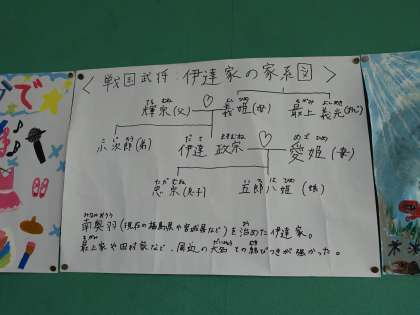 〈戦国武将:伊達家の家系図〉
輝宗(父) 義姫(母) 最上義光(おじ)
小次郎(弟) 伊達 政宗 愛姫(妻)
忠宗(息子) 五郎八姫(娘)
南奥羽(現在の福島県や宮城県など)を治めた伊達家。
最上家や田村家など、周辺の大名との結びつきが強かった。